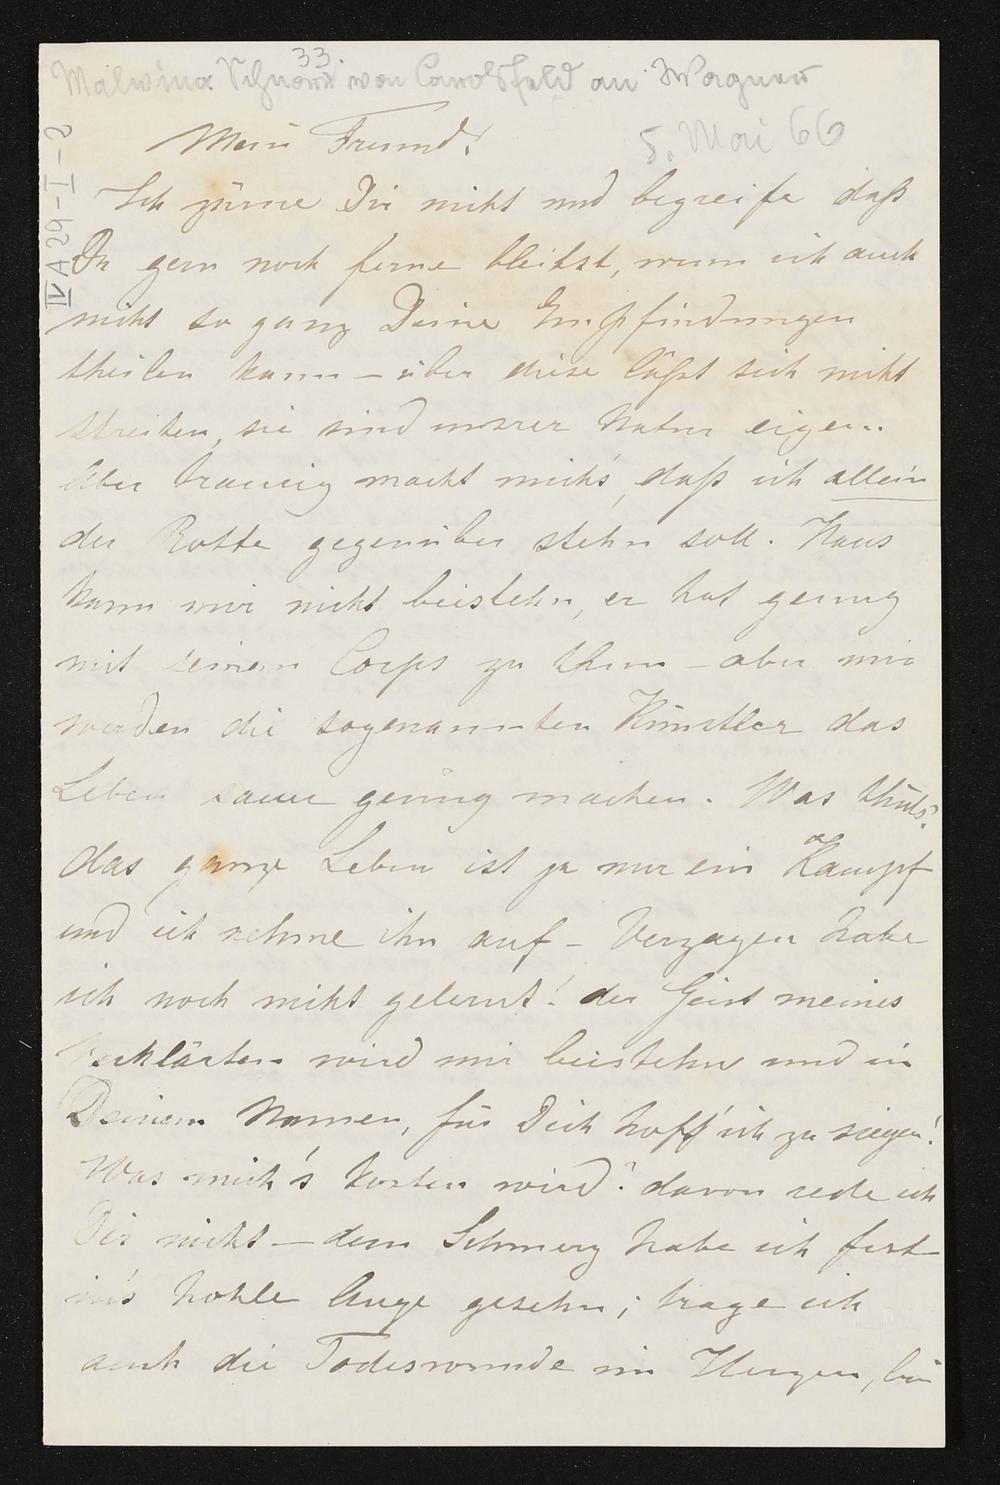 33
Malwina Schnorr von Carolsfeld an Wagner
5. Mai 66
IV A29-I-8
Mein Freund!
Ich zürne Dir nicht und begreife daß
Du gern noch ferne bleibst, wenn ich auch
nicht so ganz Deine Empfindungen
theilen kann – über diese läßt sich nicht
streiten, sie sind unsrer Natur eigen.
Aber traurig macht mich's, daß ich allein
der Rotte gegenüber stehn soll. Hans
kann mir nicht beistehn, er hat genug
mit seinem Corps zu thun – aber mir
werden die sogenannten Künstler das
Leben sauer genug machen. Was thuts?
das ganze Leben ist ja nur ein Kampf
und ich nehme ihn auf – Verzagen habe
ich noch nicht gelernt! der Geist meines
Verklärten wird mir beistehn und in
Deinem Namen, für Dich hoff' ich zu siegen!
Was mich's kosten wird? davon rede ich
Dir nicht – dem Schmerz habe ich fest
in's hohle Auge gesehn; trage ich
auch die Todeswunde im Herzen, bin